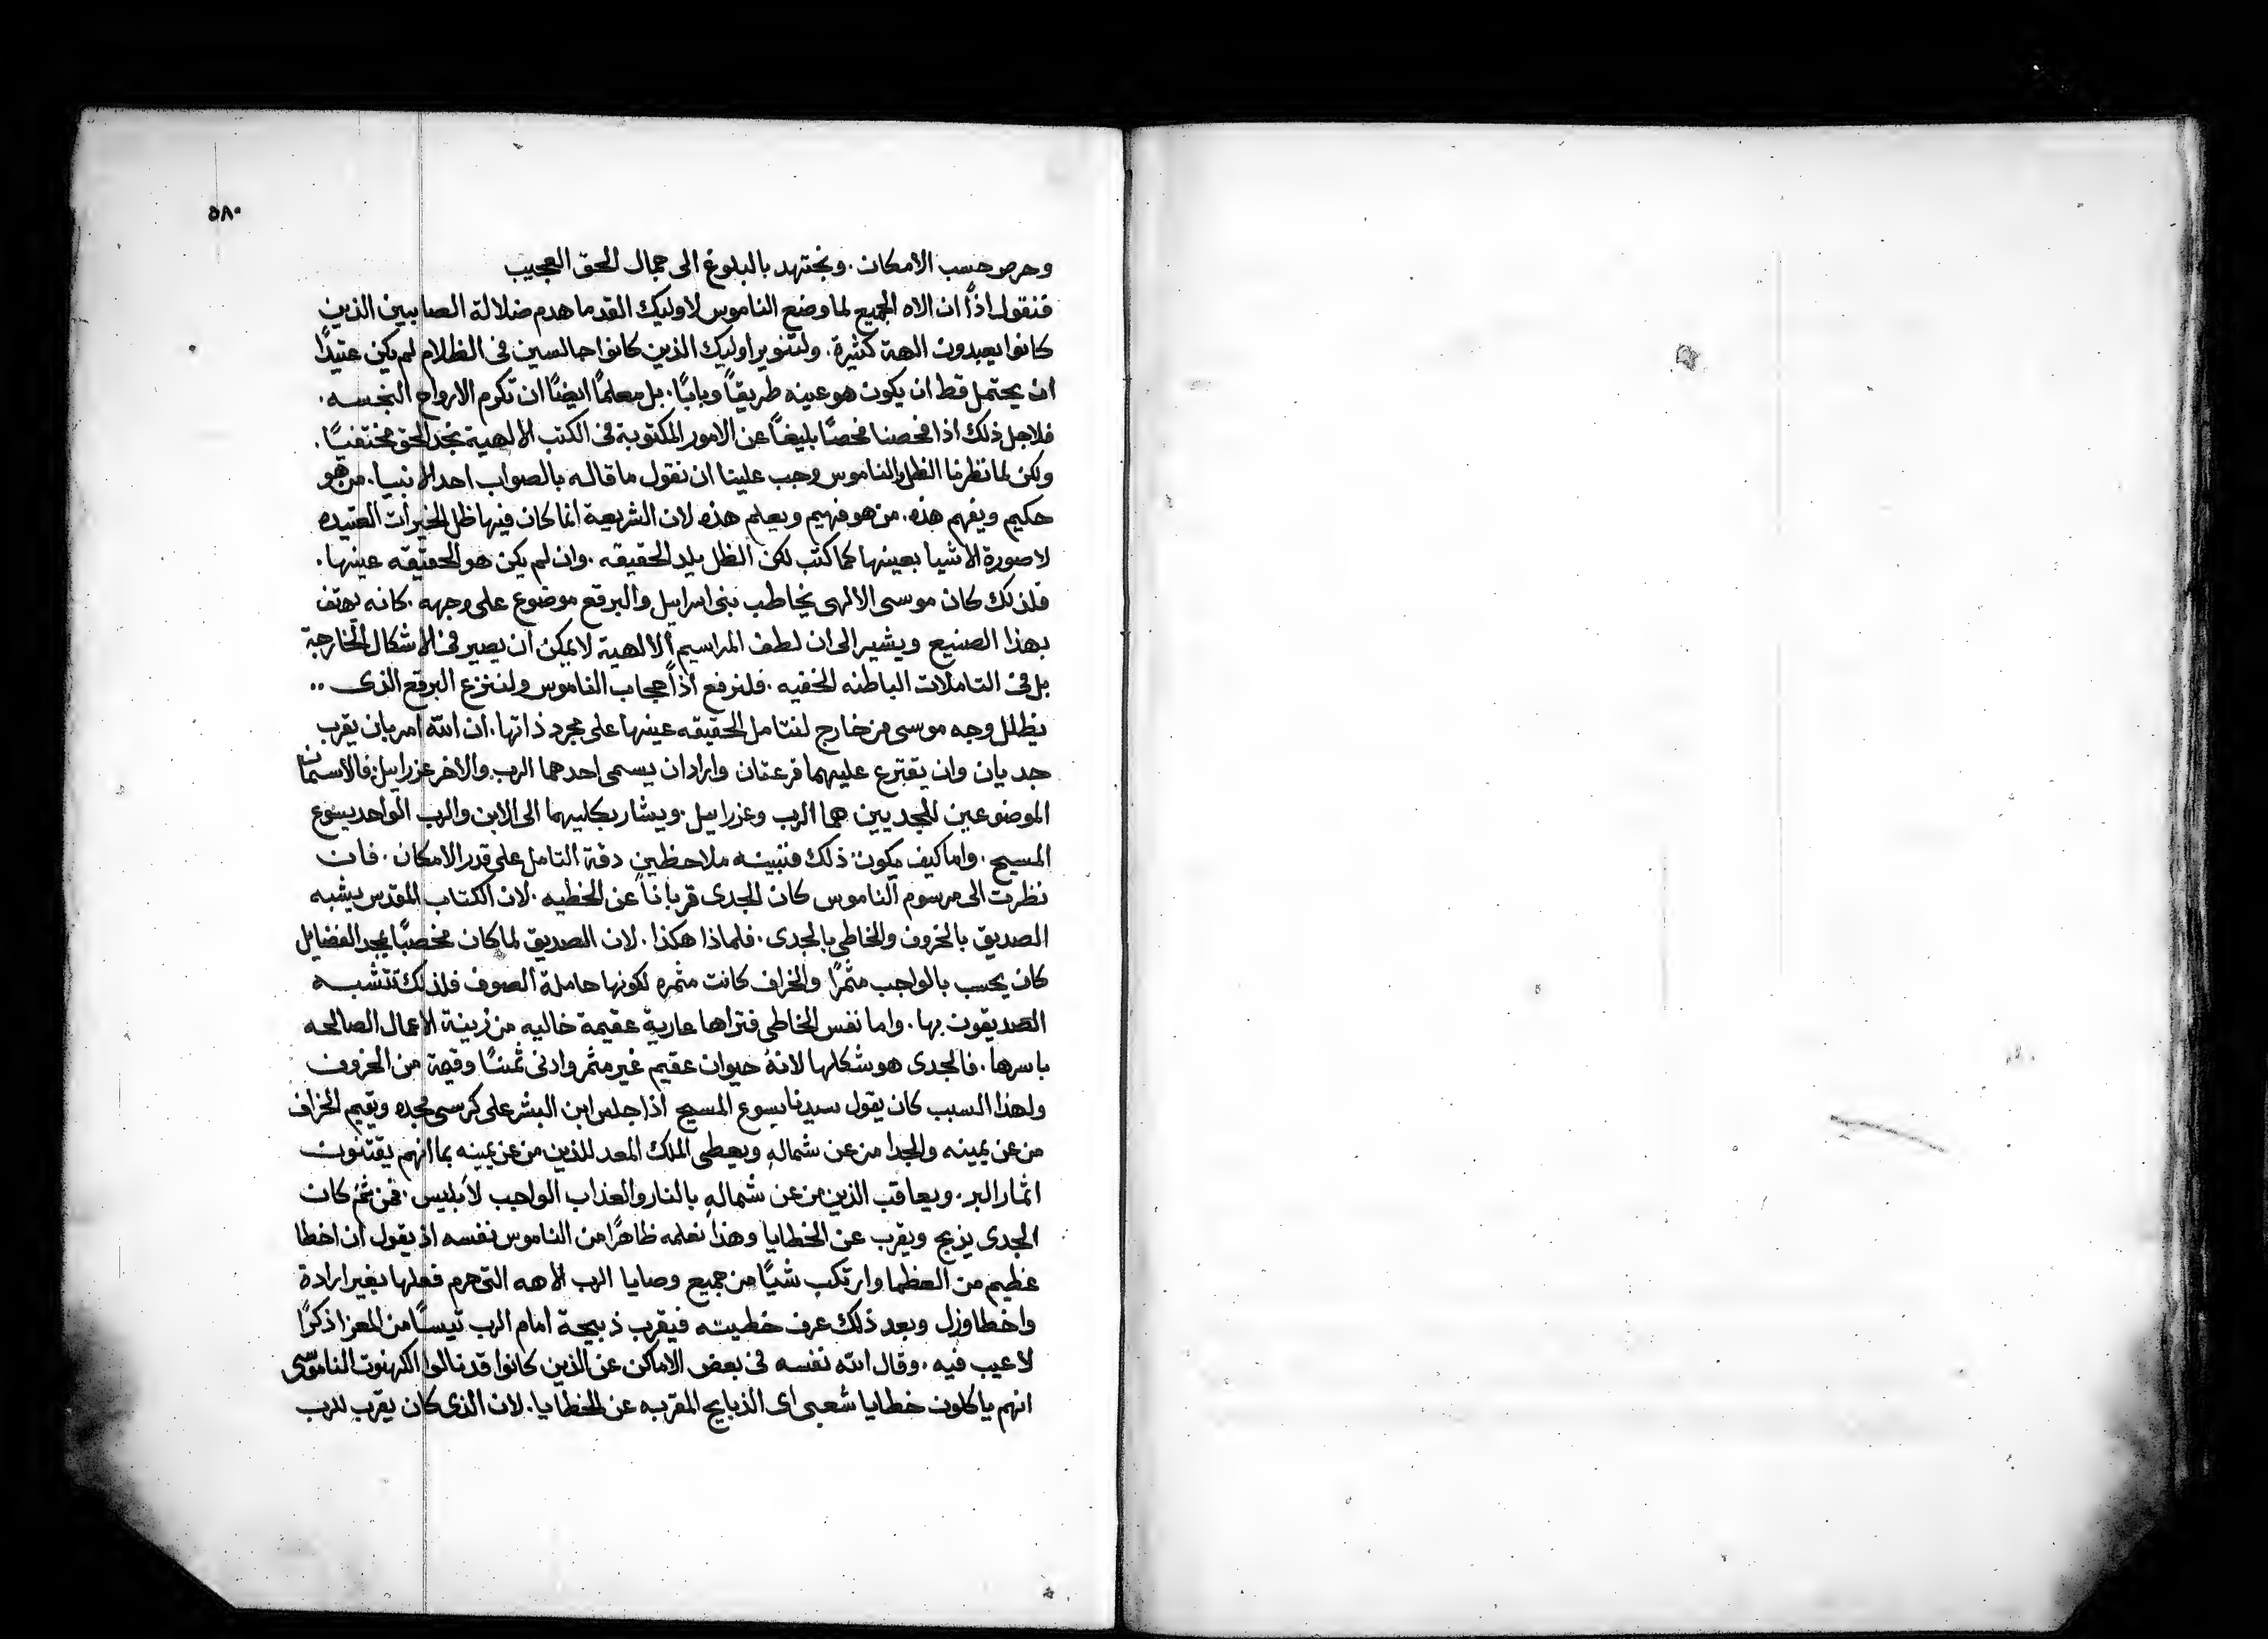 ٥٨٠
وحرص حسب الامكان. ونجتهد بالبلوغ الى جمال الحق العجيب
فنقول اذًا ان الاه الجميع لما وضع الناموس لاوليك القدما هدم ضلالة الصابيين الذين
كانوا يعبدون الهة كثيرة. ولتنوير اوليك الذين كانوا جالسين فى الظلام لم يكن عتيدًا
ان يحتمل قط ان يكون هو عينه طريقًا وبابًا. بل معلمًا ايضًا ان تكرم الارواح النجسه.
فلاجل ذلك اذا فحصنا فحصًا بليغًا عن الامور المكتوبة فى الكتب الالهية نجد الحق مختفيًا.
ولكن لما نظرنا الظل والناموس وجب علينا ان نقول ما قاله بالصواب احد الانبيا. من هو
حكيم ويفهم هذه. من هو فهيم ويعلم هذه لان الشريعة انما كان فيها ظل الخيرات العتيده
لا صورة الاشيا بعينها كما كتب لكن الظل يلد الحقيقه. وان لم يكن هو الحقيقه عينها.
فلذلك كان موسى الالهى يخاطب بنى اسراييل والبرقع موضوع على وجهه. كانه يهتف
بهذا الصنيع ويشير الى ان لطف المراسيم الالهية لا يمكن ان يصير فى الاشكال الخارجة
بل فى التاملات الباطنه الخفيه. فلنرفع اذًا حجاب الناموس ولننزع البرقع الذى ..
يظلل وجه موسى من خارج لنتامل الحقيقه عينها على مجرد ذاتها. ان الله امر بان يقرب
جديان وان يقترع عليهما قرعتان واراد ان يسمى احدهما الرب والاخر عزراييل. فالاسمان
الموضوعين للجديين هما الرب وعزراييل. ويشار بكليهما الى الابن والرب الواحد يسوع
المسيح. واما كيف يكون ذلك فنبينه ملاحظين دقة التامل على قدر الامكان. فان
نظرت الى مرسوم الناموس كان الجدى قربانًا عن الخطيه. لان الكتاب المقدس يشبه
الصديق بالخروف والخاطى بالجدى. فلماذا هكذا. لان الصديق لما كان مخصبًا بمجد الفضايل
كان يحسب بالواجب مثمرًا والخراف كانت مثمره لكونها حاملة الصوف فلذلك تتشبه
الصديقون بها. واما نفس الخاطى فتراها عارية عقيمة خاليه من زينة الاعمال الصالحه
باسرها. فالجدى هو شكلها لانه حيوان عقيم غير مثمر وادنى ثمنًا وقيمة من الخروف
ولهذا السبب كان يقول سيدنا يسوع المسيح اذا جلس ابن البشر على كرسى مجده ويقيم الخراف
من عن يمينه والجدا من عن شماله ويعطى الملك المعد للذين من عن يمينه بما انهم يقتنون
اثمار البر. ويعاقب الذين من عن شماله بالنار والعذاب الواجب لابليس. فمن ثم كان
الجدى يذبح ويقرب عن الخطايا وهذا نعلمه ظاهرًا من الناموس نفسه اذ يقول ان اخطا
عظيم من العظما وارتكب شيًا من جميع وصايا الرب الاهه التى حرم فعلها بغير ارادة
واخطا وزل وبعد ذلك عرف خطيته فيقرب ذبيحة امام الرب تيسًا من المعزا ذكرًا
لا عيب فيه. وقال الله نفسه فى بعض الاماكن عن الذين كانوا قد نالوا الكهنوت الناموسى
انهم ياكلون خطايا شعبى اى الذبايح المقربه عن الخطايا. لان الذى كان يقرب للرب